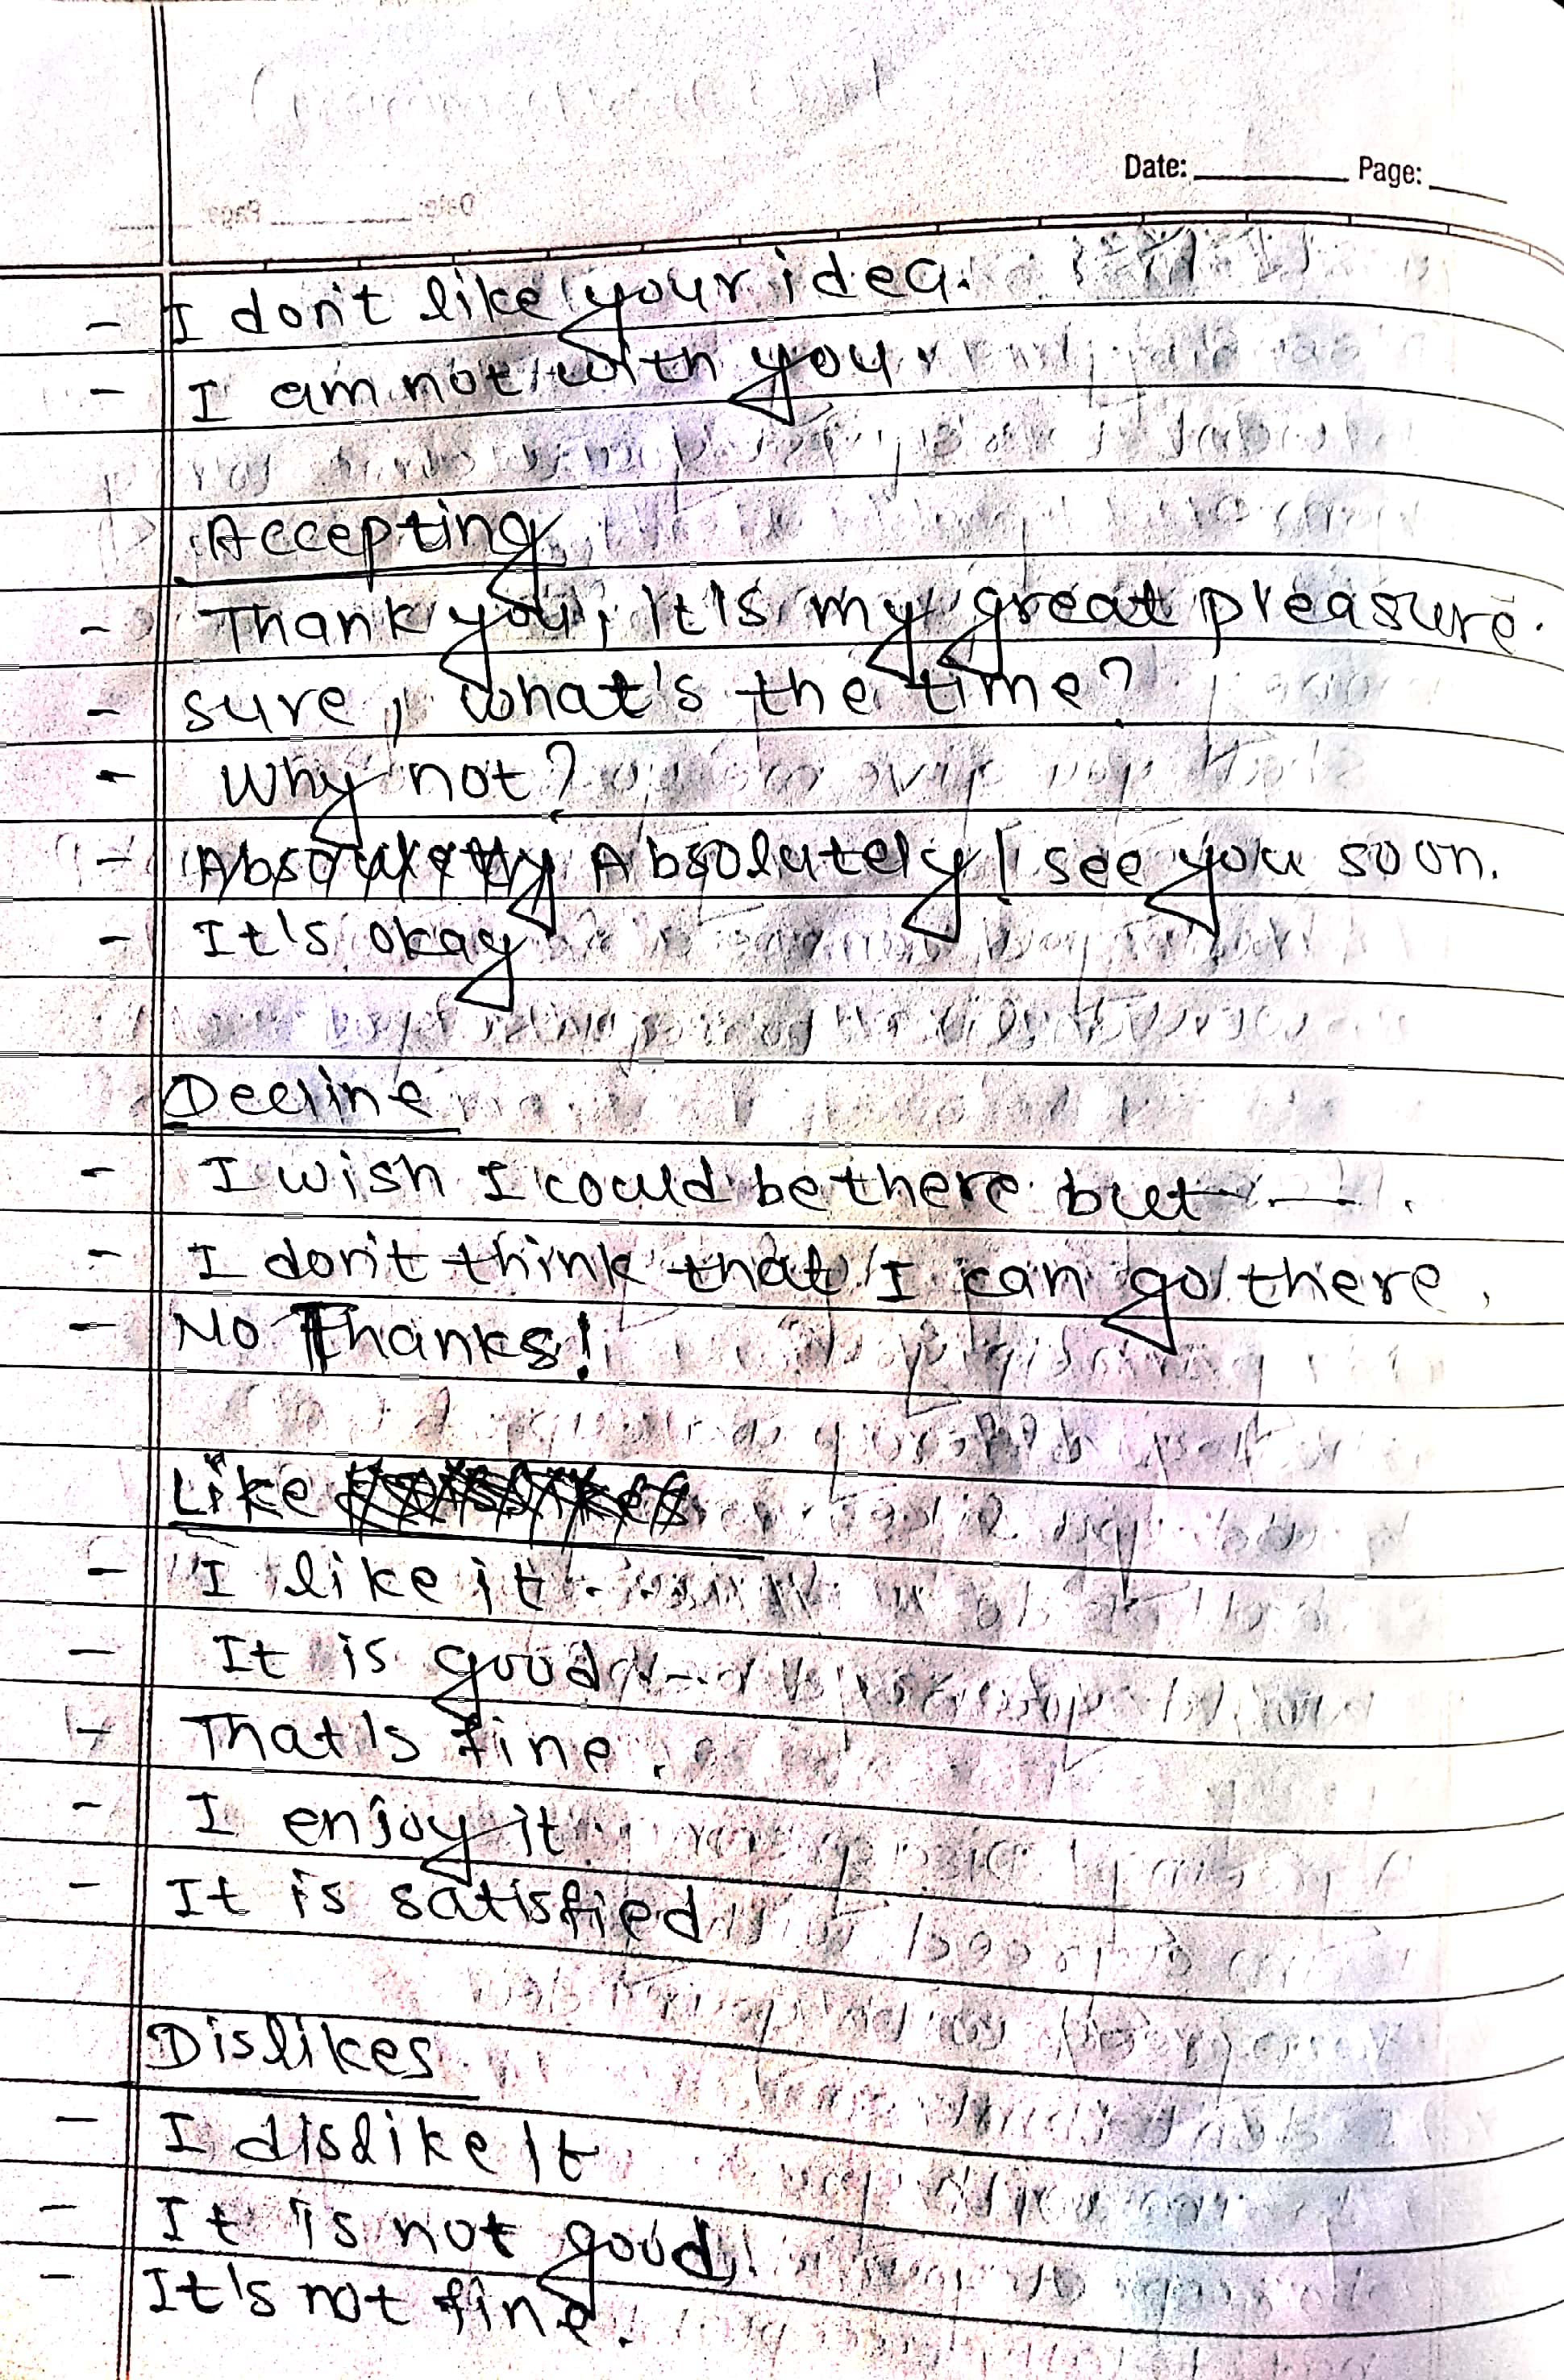 Date: Page:
- I don't like your idea.
- I am not with you
Accepting
- Thank you, It is my great pleasure.
- sure, what's the time?
- Why not?
- Absolutely! see you soon.
- It's okay
Decline
- I wish I could be there but --- .
- I don't think that I can go there.
- No Thanks!
Like
- I like it
- It is good
- That's fine.
- I enjoy it
- It is satisfied
Dislikes
- I dislike it
- It is not good.
- It's not fine.